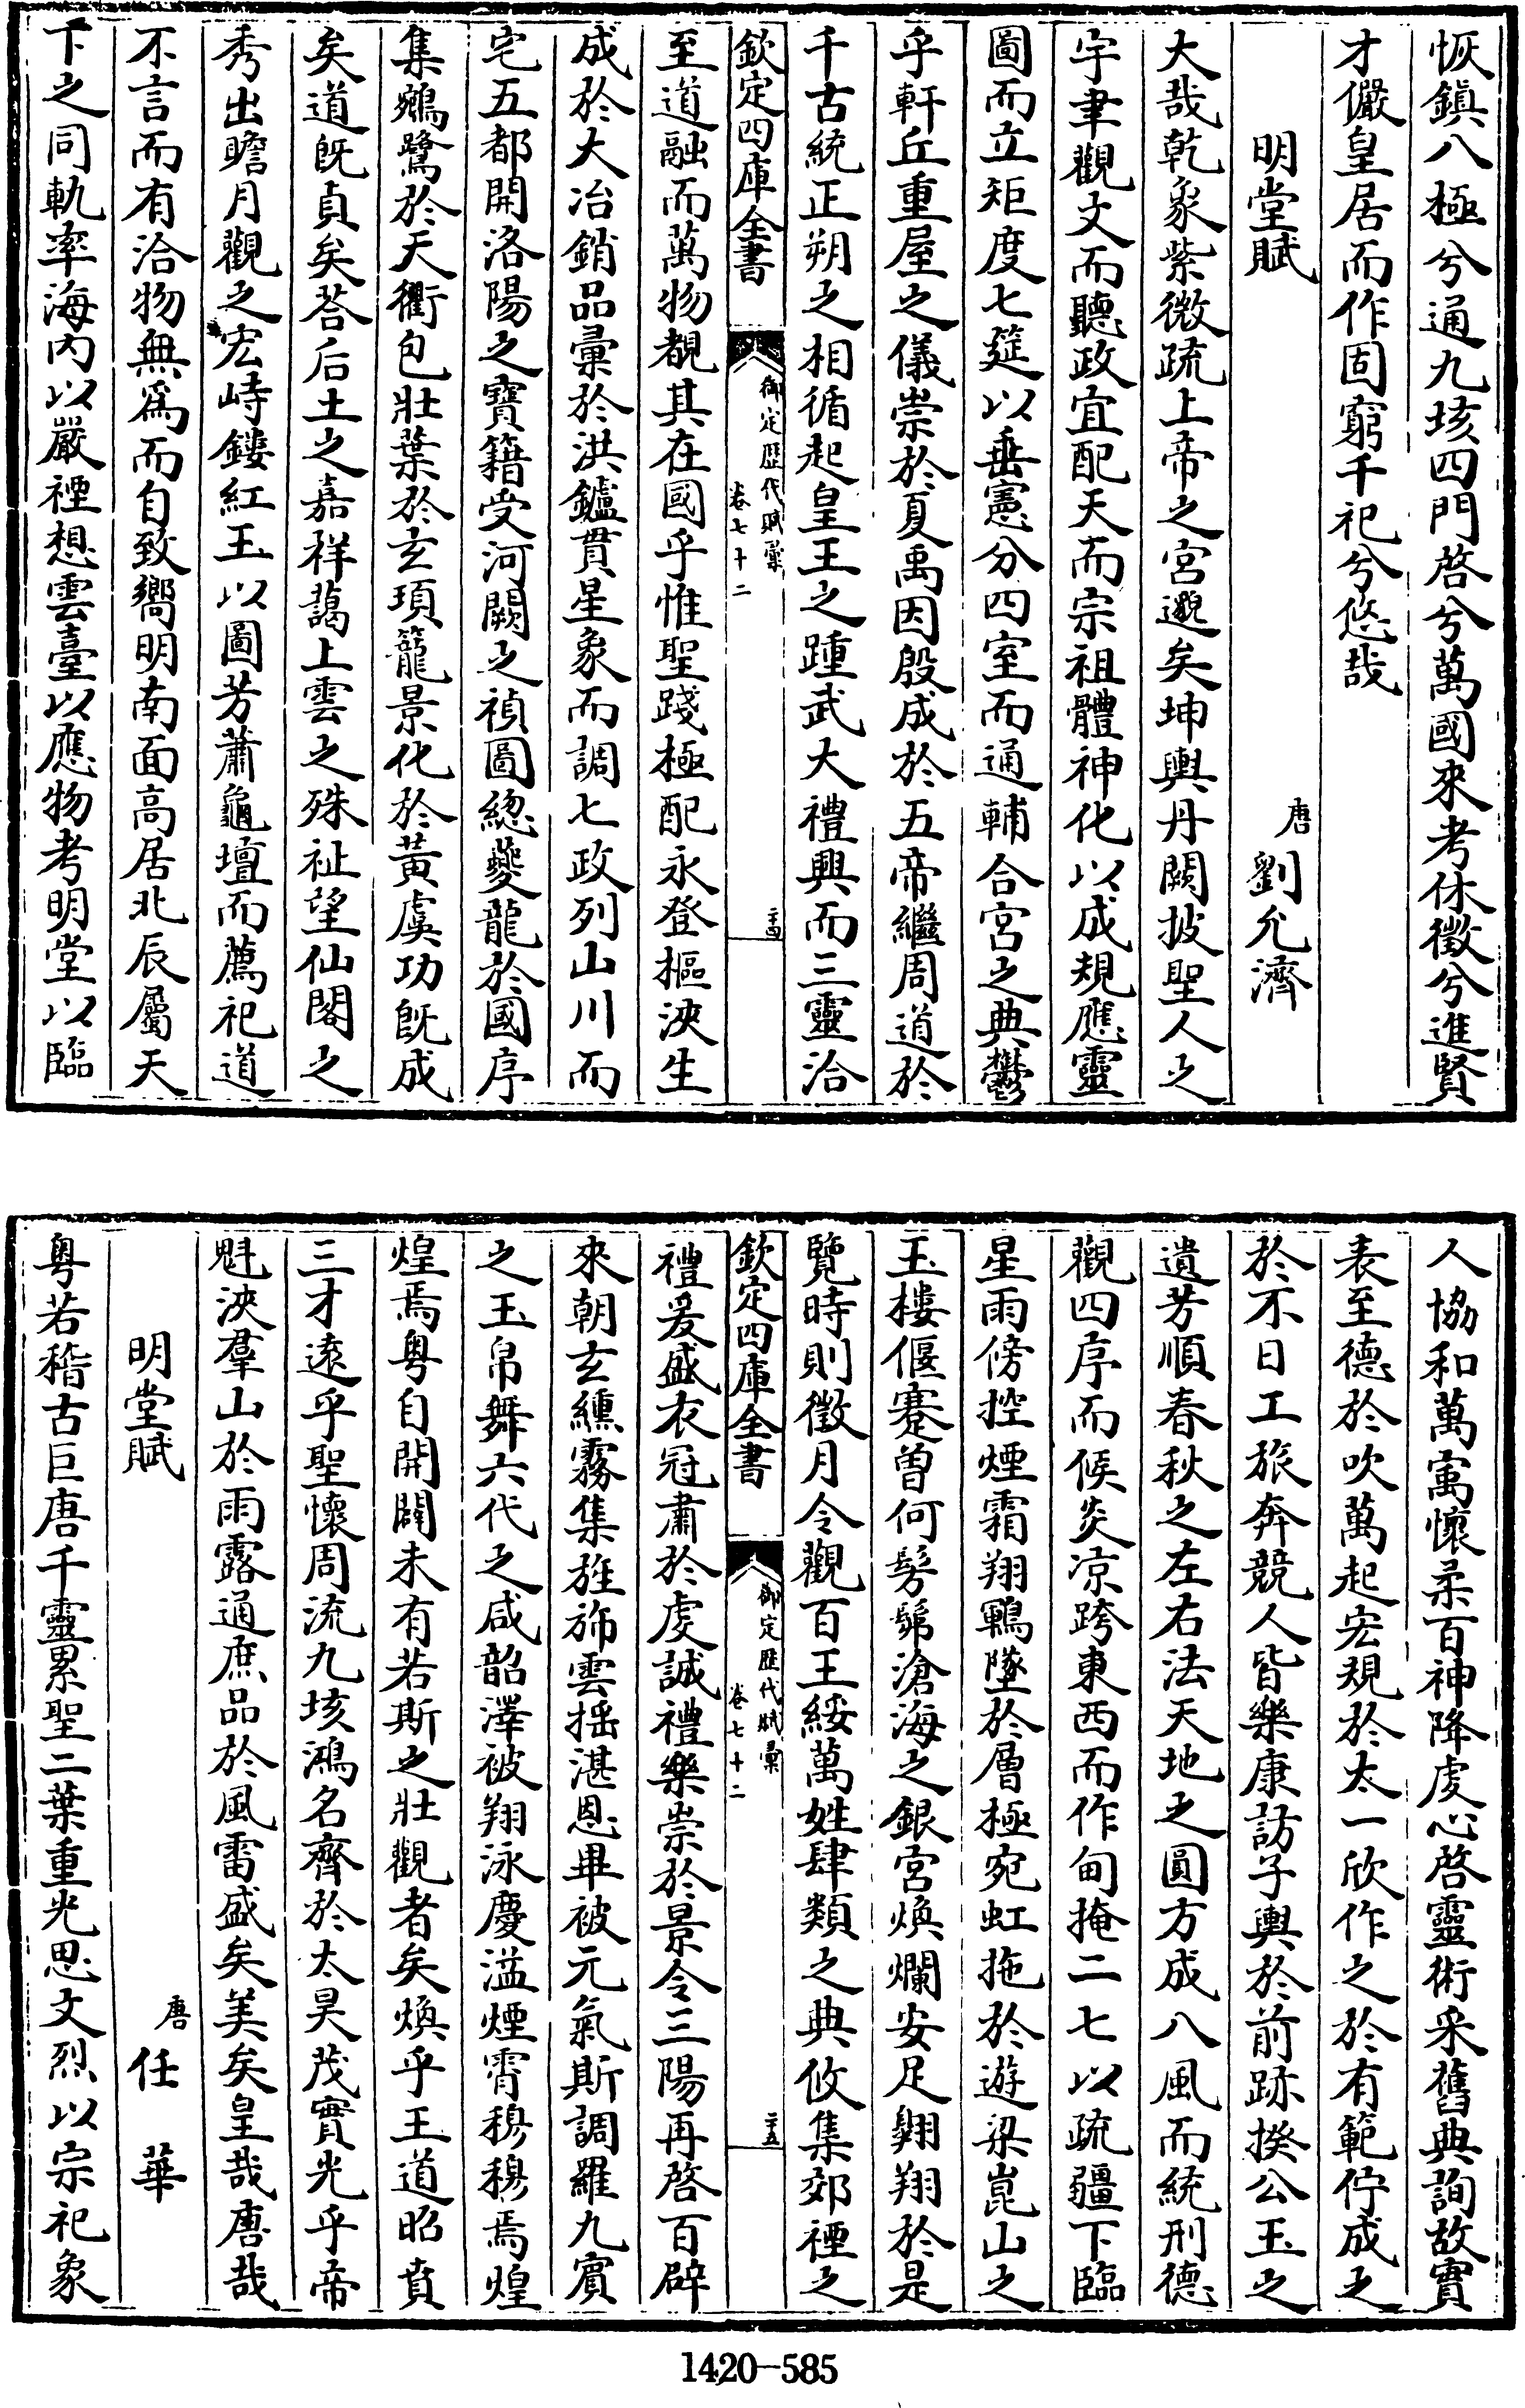 恢鎮八極兮通九垓四門啓兮萬國來考休徵兮進賢
才儼皇居而作固窮千祀兮悠哉
明堂賦
唐劉允濟
大哉乾象紫微疏上帝之宮邈矣坤輿丹闕披聖人之
宇聿觀文而聽政宜配天而宗祖體神化以成規應靈
圖而立矩度七筵以垂憲分四室而通輔合宮之典鬱
乎軒丘重屋之儀崇於夏禹因殷成於五帝繼周道於
千古統正朔之相循起皇王之踵武大禮興而三靈洽
欽定四庫全書
御定歷代賦彙
卷七十二
二十四
至道融而萬物覩其在國乎惟聖踐極配永登樞浹生
成於大冶銷品彙於洪鑪貫星象而調七政列山川而
宅五都開洛陽之寶籍受河闕之禎圖總夔龍於國序
集鵷鷺於天衢包壯葉於玄頊籠景化於黃虞功既成
矣道既貞矣荅后土之嘉祥藹上雲之殊祉望仙閣之
秀出瞻月觀之宏峙鏤紅玉以圖芳肅龜壇而薦祀道
不言而有洽物無為而自致嚮明南面高居北辰屬天
下之同軌率海內以嚴禋想雲臺以應物考明堂以臨
人協和萬㝢懷柔百神降虔心啓靈術采舊典詢故實
表至德於吹萬起宏規於太一欣作之於有範佇成之
於不日工旅奔競人皆樂康訪子輿於前跡揆公玉之
遺芳順春秋之左右法天地之圓方成八風而統刑德
觀四序而候炎凉跨東西而作甸掩二七以疏疆下臨
星雨傍控煙霜翔鶤墜於層極宛虹拖於遊梁崑山之
玉樓偃蹇曾何髣髴滄海之銀宮煥爛安足翺翔於是
覽時則徵月令觀百王綏萬姓肆類之典攸集郊禋之
欽定四庫全書
御定歷代賦彙
卷七十二
二十五
禮爰盛衣冠肅於虔誠禮樂崇於景令三陽再啓百辟
來朝玄纁霧集旌斾雲揺湛恩畢被元氣斯調羅九賓
之玉帛舞六代之咸韶澤被翔泳慶溢煙霄穆穆焉煌
煌焉粤自開闢未有若斯之壯觀者矣煥乎王道昭賁
三才遠乎聖懷周流九垓鴻名齊於太昊茂實光乎帝
魁浹羣山於雨露通庶品於風雷盛矣美矣皇哉唐哉
明堂賦
唐任華
粤若稽古巨唐千靈累聖二葉重光思文烈以宗祀象
1420-585